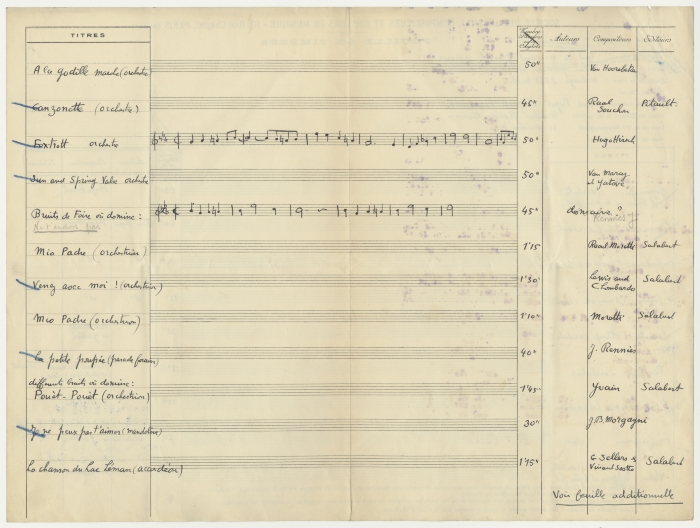 TITRES
Auteurs Compositeurs Editeurs
A la godille marche (orchestre 50" Van Hoorebeke
Canzonette (orchestre) 45" Raoul Souchon
Foxtrott orchestre 50" Hugo Hirsch
Sun and Spring Valse orchestre 50"
Bruits de Foire où domine : 45" domaine ?
Mio Padre (orchestrion) 1'15 Raoul Moretti Salabert
Venez avec moi ! (orchestrion) 1'30" Lewis and C Lombardo Salabert
Mio Padre (orchestrion) 1'10" Moretti Salabert
La petite poupée (parade foraine) 40" J. Rennies
différents bruits où domine :
Pouèt-Pouèt (orchestrion) 1'45" Yvain Salabert
Je ne peux pas t'aimer (mandoline) 30" J.B. Morgagni
La chanson du Lac Léman (accordéon) 1'15" G Sellers & Vincent Scotto Salabert
Voir feuille additionnelle